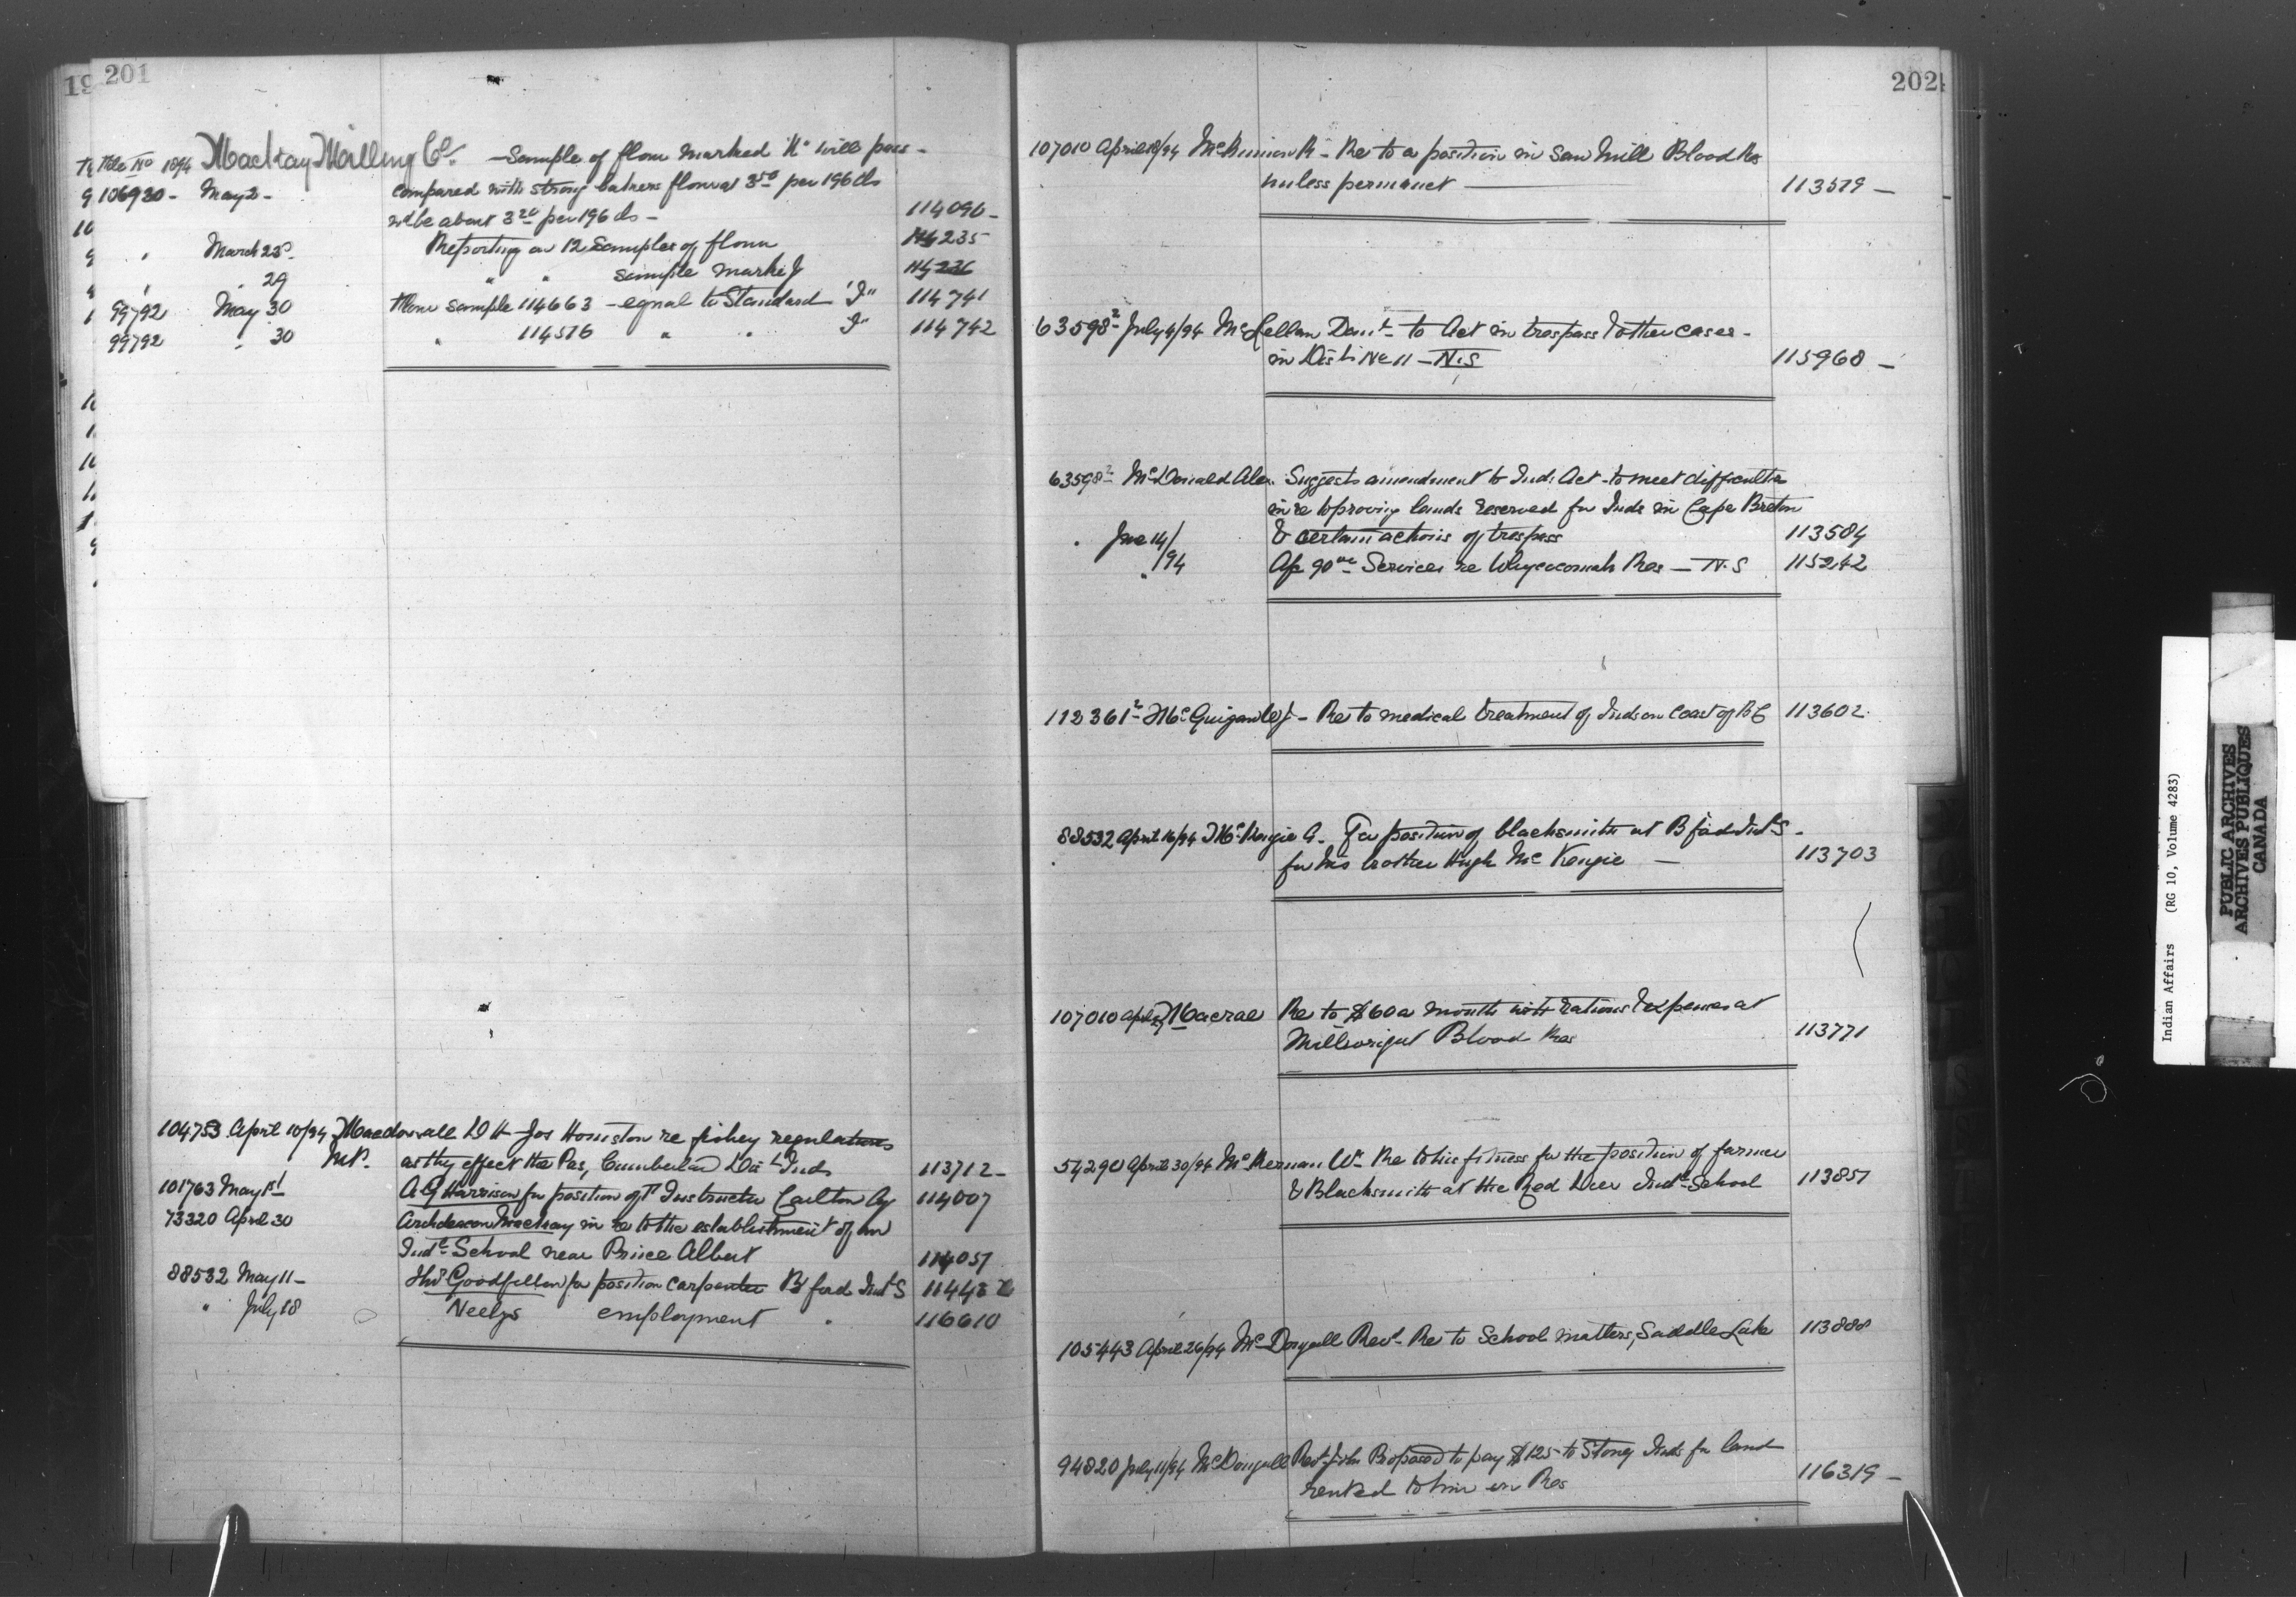 201
File No 1894 Mackay Milling Co. — Sample of flour marked "K" will pass -
106920 - May 2 - compared with strong bakers flour at 3 50 per 196 lbs
wd be about 3 20 per 196 lbs — 114096 -
" March 28 Reporting on 12 samples of flour 114235
" " 29 " " sample marked J 114236
99792 May 30 flour sample 114663 - equal to Standard "J" 114741
99792 " 30 " 114516 " " J" 114742
104753 April 10/94 Macdowall D H - Jos Houston re fishery regulations
M.P. as they effect the Pas, Cumberland Dist Inds 113712 -
101763 May 1st A G Harrison for position of Instructor Carlton Ag 114007
73320 April 30 Archdeacon Mackay in re to the establishment of an
Indl School near Prince Albert 114051
88532 May 11 - Thos Goodfellow for position carpenter B'ford Indl S 11443
" July 18 Neelys employment " 116610
202
107010 April 18/94 McKinnon R - Re to a position in Saw Mill Blood Res
unless permanet — 113579 —
63598 2 July 4/94 McLellan Danl - to Act in trespass & other cases -
in Dist No 11 - N.S 115968 —
63598 2 McDonald Alex. Suggests amendment to Ind. Act - to meet difficulties
in re to proving lands reserved for Inds in Cape Breton
" June 14/ & certain actions of trespass 113584
" /94 A/c 90 00 Services re Whycocomah Res — N.S 115242
112361 2 McGuigan W J - Re to medical treatment of Inds on Coast of B C 113602
88532 April 16/94 McKenzie A. For position of blacksmith at B'ford Indl S -
for his brother Hugh McKenzie — 113703
107010 April Macrae Re to $60 a month with rations & expenses at
Millwright Blood Res 113771
54290 April 30/94 McKernan Wm Re to his fitness for the position of farmer
& Blacksmith at the Red Deer Indl School 113851
105443 April 26/94 McDougall Revd - Re to School matters, Saddle Lake 113888
94820 July 11/94 McDougall Revd John Proposed to pay $125 to Stoney Inds for land
rented to him on Res 116319 —
Indian Affairs (RG 10, Volume 4283)
PUBLIC ARCHIVES
ARCHIVES PUBLIQUES
CANADA